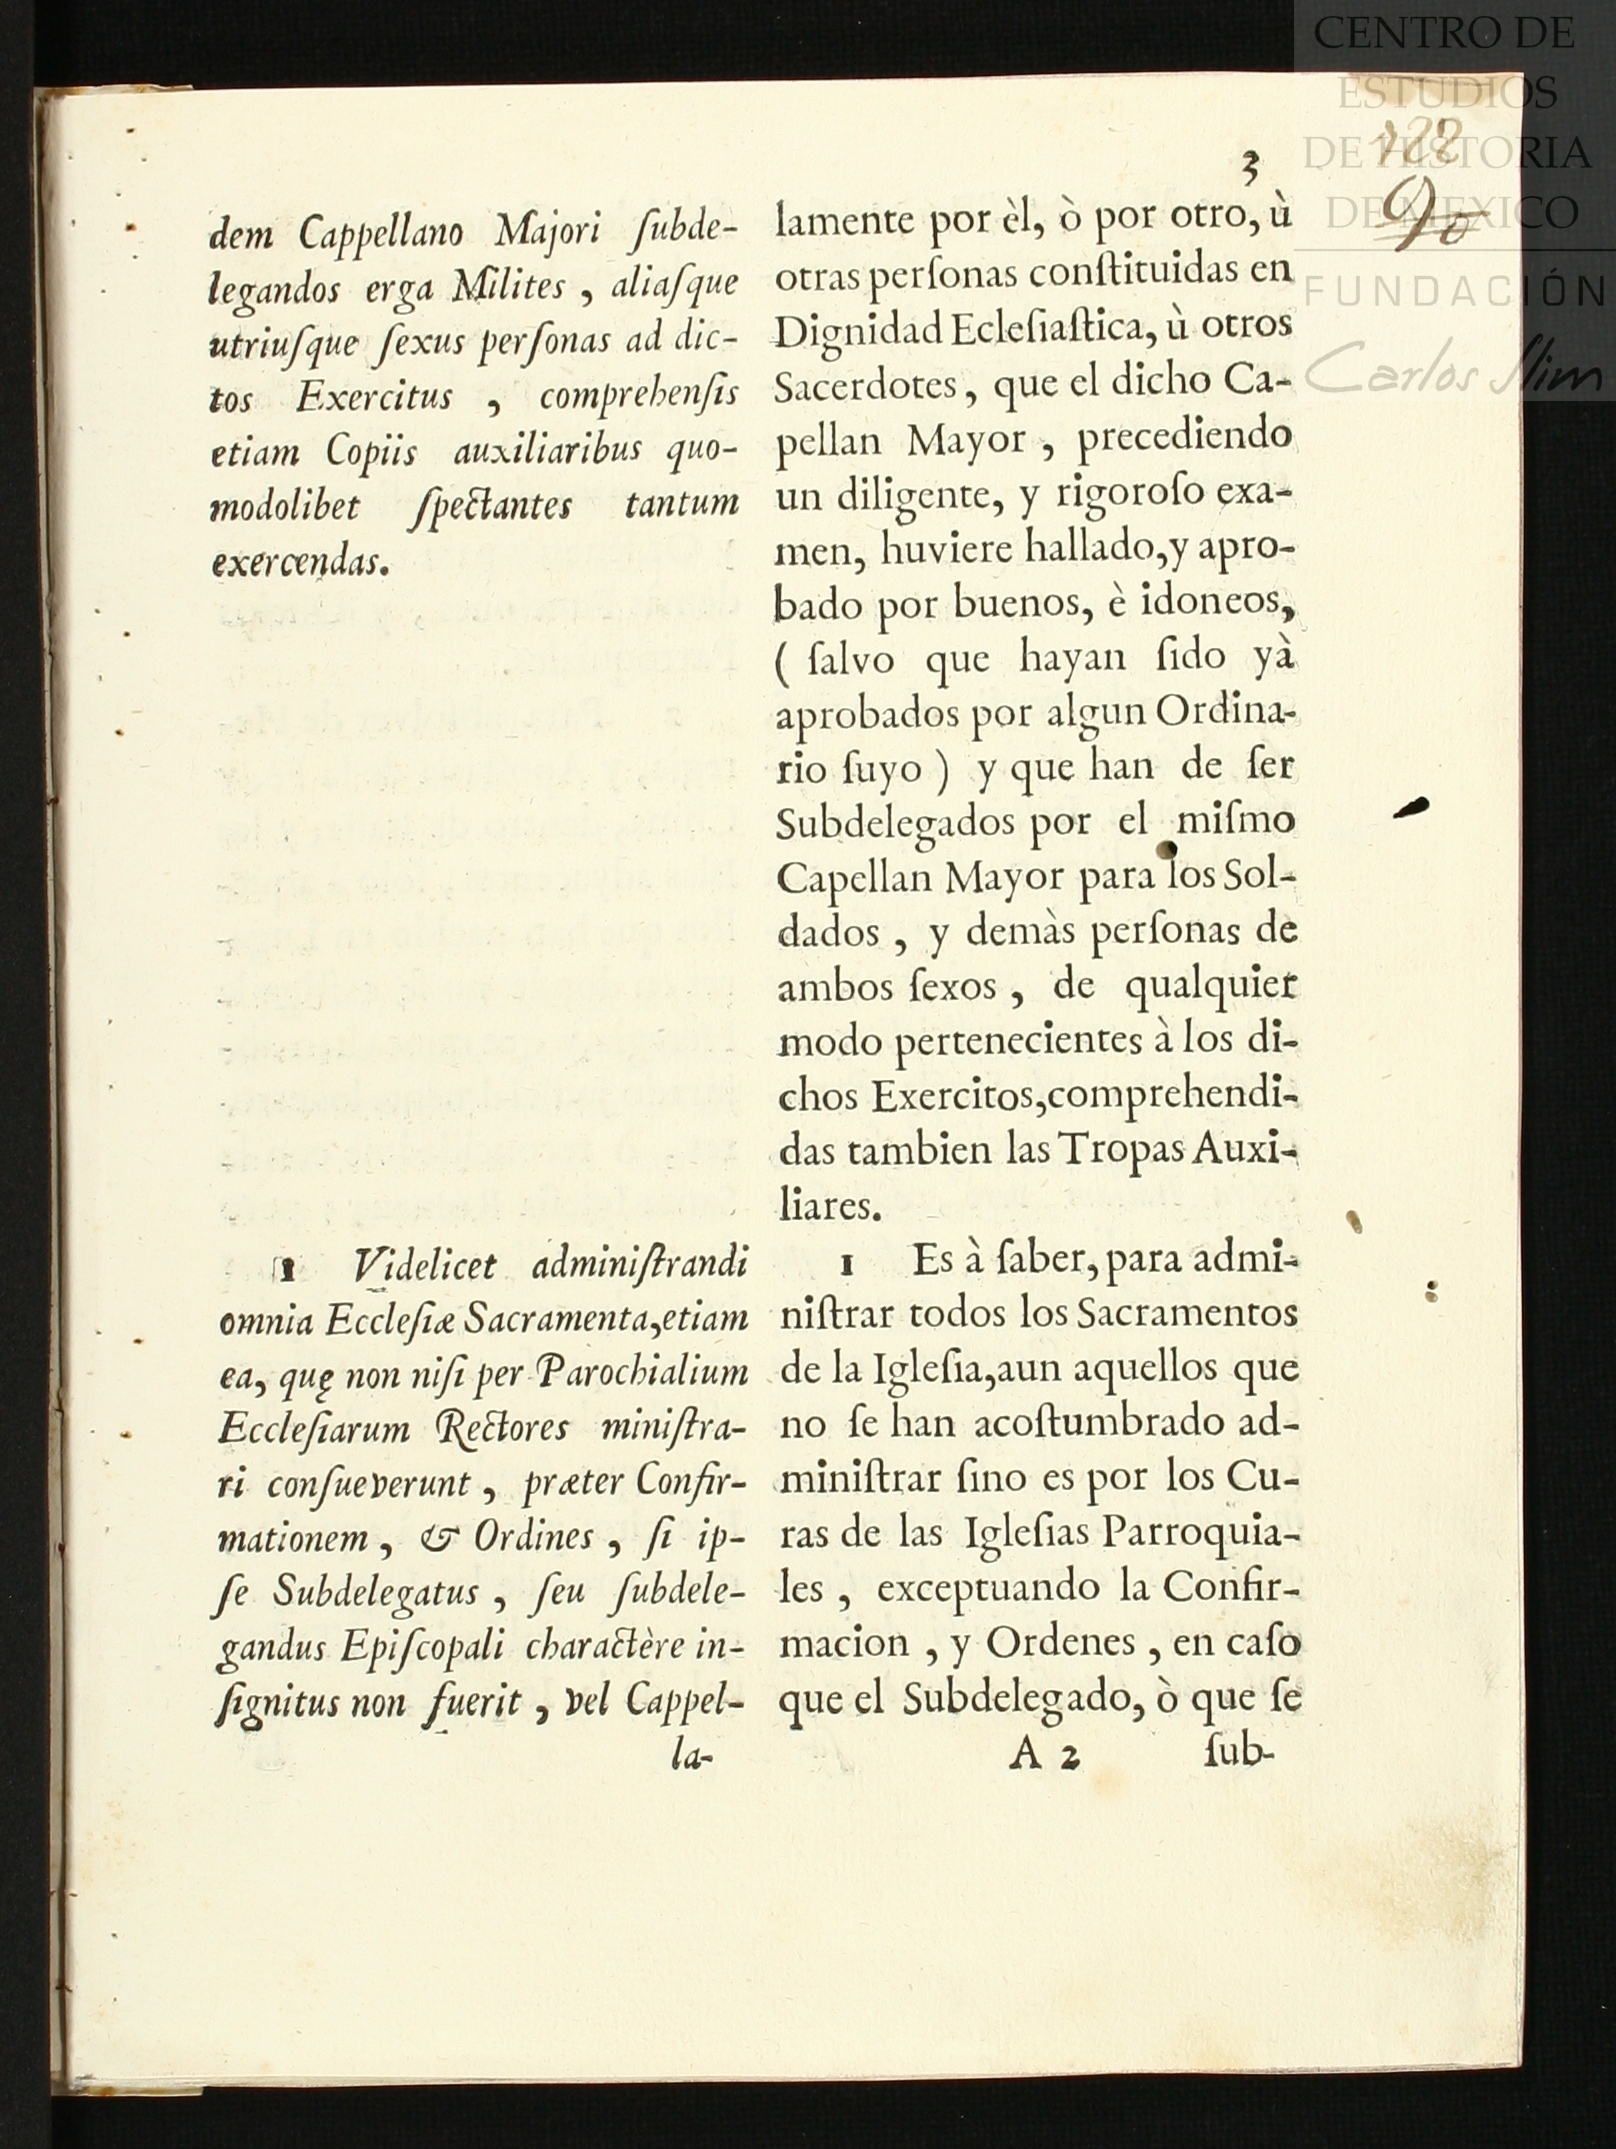 3
dem Cappellano Majori ſubde-
legandos erga Milites, aliaſque
utriuſque ſexus perſonas ad dic-
tos Exercitus, comprehenſis
etiam Copiis auxiliaribus quo-
modolibet ſpectantes tantum
exercendas.
1 Videlicet adminiſtrandi
omnia Eccleſiæ Sacramenta, etiam
ea, quę non niſi per Parochialium
Eccleſiarum Rectores miniſtra-
ri conſueverunt, præter Confir-
mationem, & Ordines, ſi ip-
ſe Subdelegatus, ſeu ſubdele-
gandus Epiſcopali charactère in-
ſignitus non fuerit, vel Cappel-
la-
lamente por èl, ò por otro, ù
otras perſonas conſtituidas en
Dignidad Ecleſiaſtica, ù otros
Sacerdotes, que el dicho Ca-
pellan Mayor, precediendo
un diligente, y rigoroſo exa-
men, huviere hallado, y apro-
bado por buenos, è idoneos,
( ſalvo que hayan ſido yà
aprobados por algun Ordina-
rio ſuyo ) y que han de ſer
Subdelegados por el miſmo
Capellan Mayor para los Sol-
dados, y demàs perſonas de
ambos ſexos, de qualquier
modo pertenecientes à los di-
chos Exercitos, comprehendi-
das tambien las Tropas Auxi-
liares.
1 Es à ſaber, para admi-
niſtrar todos los Sacramentos
de la Igleſia, aun aquellos que
no ſe han acoſtumbrado ad-
miniſtrar ſino es por los Cu-
ras de las Igleſias Parroquia-
les, exceptuando la Confir-
macion, y Ordenes, en caſo
que el Subdelegado, ò que ſe
A 2 ſub-
CENTRO DE
ESTUDIOS
DE HISTORIA
DE MEXICO
FUNDACIÓN
Carlos Slim
90